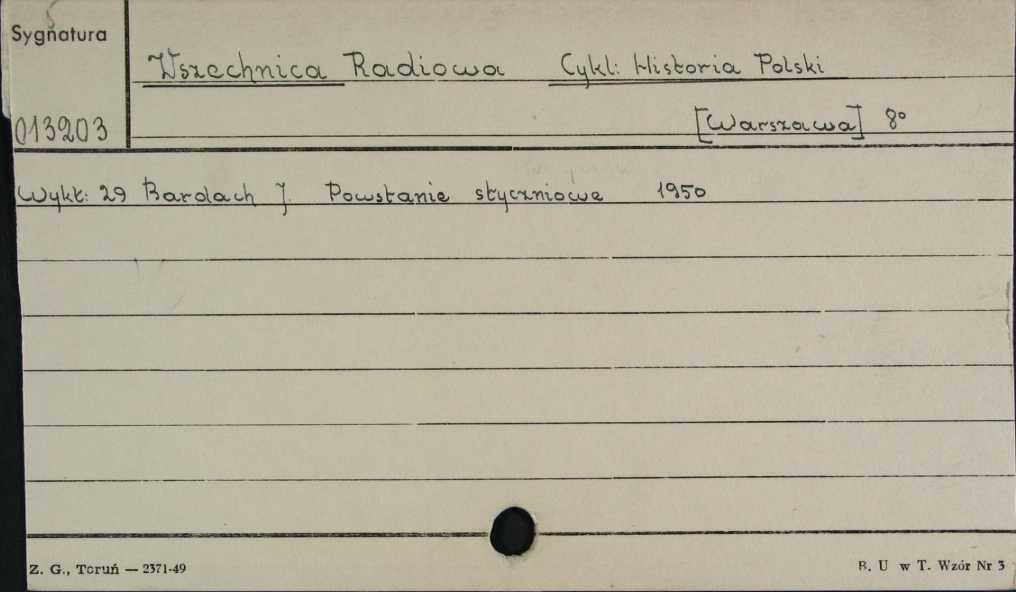 Sygnatura
Wszechnica Radiowa Cykl: Historia Polski
013203 [Warszawa] 8º
Wykł: 29 Bardach J. Powstanie styczniowe 1950
Z. G., Toruń — 2371-49 B. U w T. Wzór Nr 3